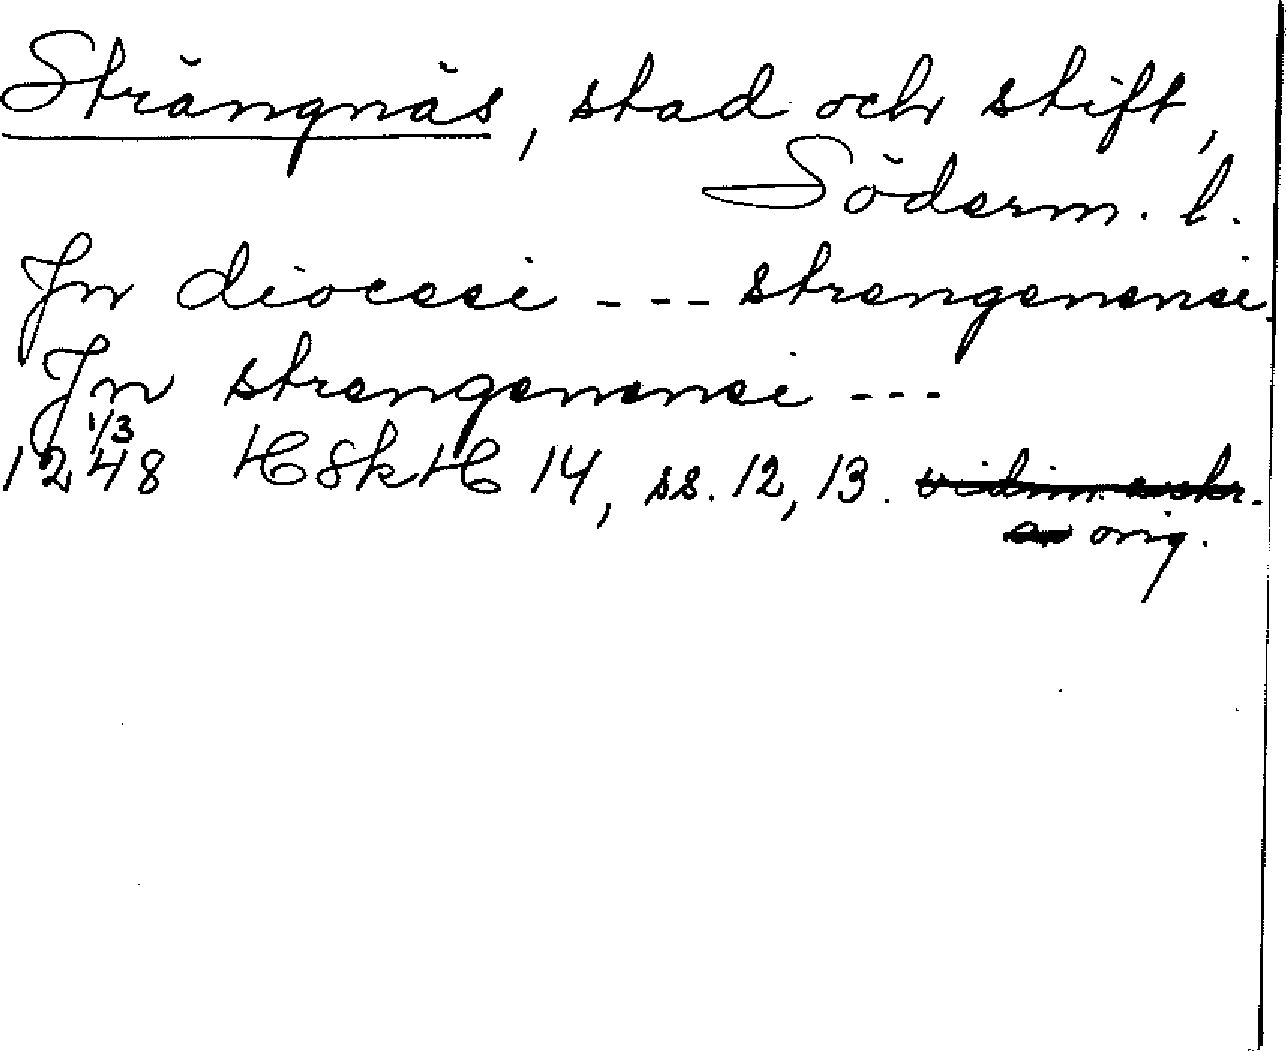 Strängnäs, stad och stift,
Söderm. l.
In diocesi --- strengenensi.
In strengenensi ---
1248 1/3 HSkH 14, ss. 12, 13. vidim. avskr.
av orig.